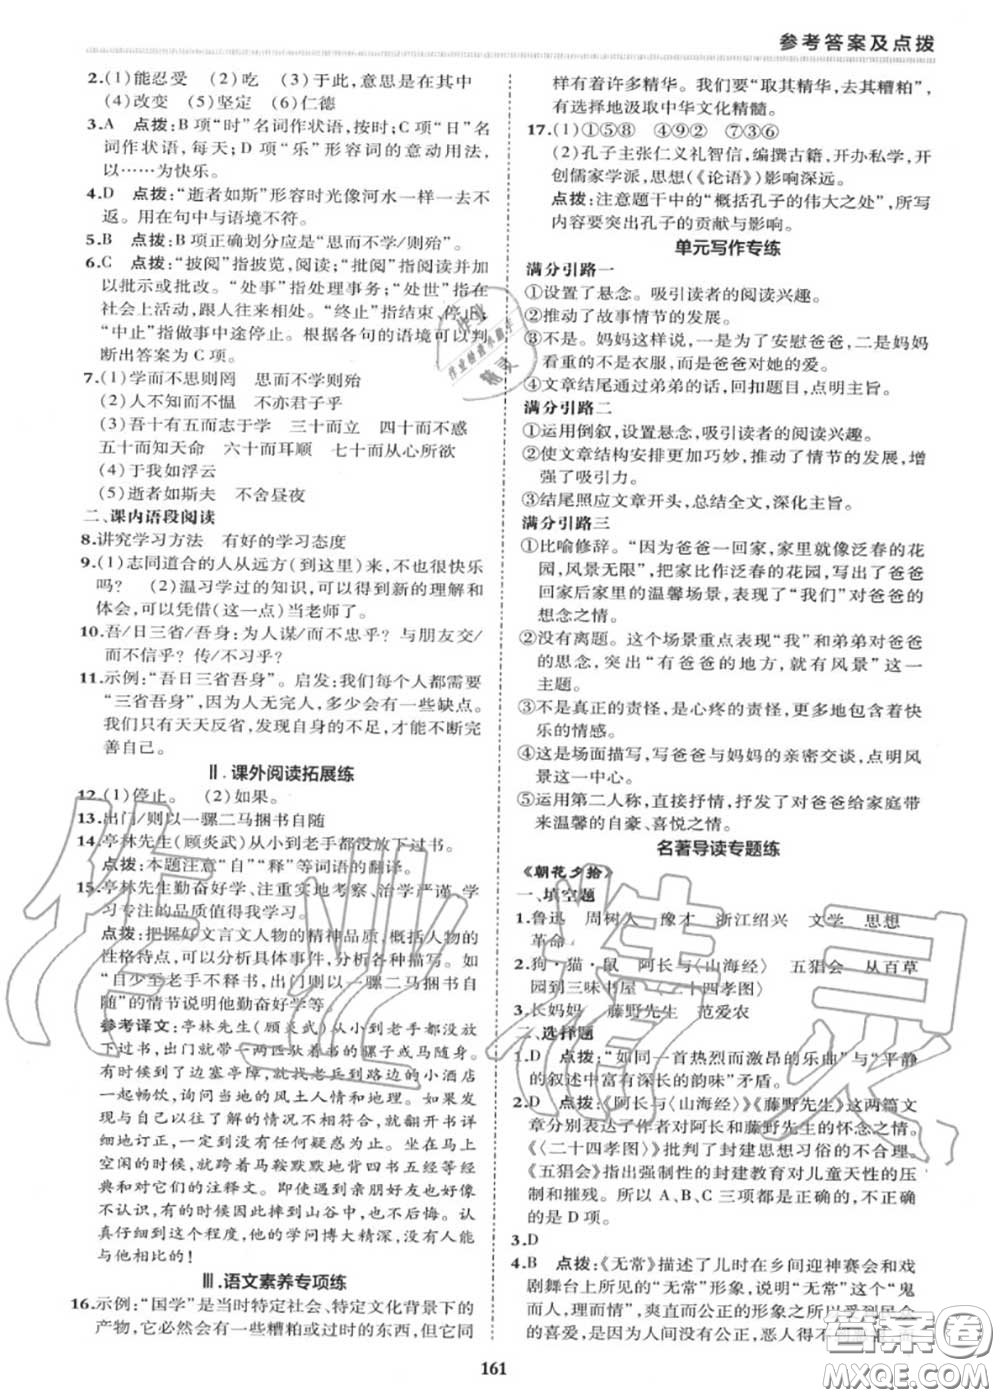 参考答案及点拨
2.(1)能忍受　(2)吃　(3)于此,意思是在其中
(4)改变　(5)坚定　(6)仁德
3.A　点拨:B项“时”名词作状语,按时;C项“日”名
词作状语,每天;D项“乐”形容词的意动用法,
以……为快乐。
4.D　点拨:“逝者如斯”形容时光像河水一样一去不
返。用在句中与语境不符。
5.B　点拨:B项正确划分应是“思而不学/则殆”。
6.C　点拨:“披阅”指披览,阅读;“批阅”指阅读并加
以批示或批改。“处事”指处理事务;“处世”指在
社会上活动,跟人往来相处。“终止”指结束,停止;
“中止”指做事中途停止。根据各句的语境可以判
断出答案为C项。
7.(1)学而不思则罔　思而不学则殆
(2)人不知而不愠　不亦君子乎
(3)吾十有五而志于学　三十而立　四十而不惑
五十而知天命　六十而耳顺　七十而从心所欲
(4)于我如浮云
(5)逝者如斯夫　不舍昼夜
二、课内语段阅读
8.讲究学习方法　有好的学习态度
9.(1)志同道合的人从远方(到这里)来,不也很快乐
吗?　(2)温习学过的知识,可以得到新的理解和
体会,可以凭借(这一点)当老师了。
10.吾/日三省/吾身:为人谋/而不忠乎?与朋友交/
而不信乎?传/不习乎?
11.示例:“吾日三省吾身”。启发:我们每个人都需要
“三省吾身”,因为人无完人,多少会有一些缺点。
我们只有天天反省,发现自身的不足,才能不断完
善自己。
Ⅱ.课外阅读拓展练
12.(1)停止。　(2)如果。
13.出门/则以一骡二马捆书自随
14.亭林先生(顾炎武)从小到老手都没放下过书。
点拨:本题注意“自”“释”等词语的翻译。
15.亭林先生勤奋好学、注重实地考察、治学严谨、学
习专注的品质值得我学习。
点拨:把握好文言文人物的精神品质,概括人物的
性格特点,可以分析具体事件,分析各种描写。如
“自少至老手不释书,出门则以一骡二马捆书自
随”的情节说明他勤奋好学等。
参考译文:亭林先生(顾炎武)从小到老手都没放
下过书,出门就带一两匹驮着书的骡子或马随身。
有时候到了边塞亭障,就找老兵到路边的小酒店
一起畅饮,询问当地的风土人情和地理。如果发
现与自己以往了解的情况不相符合,就翻开书详
细地订正,一定到没有任何疑惑为止。在马上
空闲的时候,就跨着马鞍默默地背四书五经等经
典和对它们的注释文。即使遇到亲朋好友也好像
不认识,有的摔倒在山谷中,也不后悔。有认
真仔细到这种地步,他的学问博大精深,没有人能
与他相比的!
Ⅲ.语文素养专项练
16.示例:“国学”是当时特定社会、特定文化背景下的
产物,它必然会有一些糟粕或过时的东西,但它同
样有着许多精华。我们要“取其精华,去其糟粕”,
有选择地汲取中华文化精髓。
17.(1)①⑤⑧　④⑨②　⑦③⑥
(2)孔子主张仁义礼智信,编撰古籍,开办私学,开
创儒家学派,思想(《论语》)影响深远。
点拨:注意题干中的“概括孔子的伟大之处”,所写
内容要突出孔子的贡献与影响。
单元写作专练
满分引路一
①设置了悬念。吸引读者的阅读兴趣。
②推动了故事情节的发展。
③不是。妈妈这样说,一是为了安慰爸爸,二是妈妈
看重的不是衣服,而是爸爸对她的爱。
④文章结尾通过弟弟的话,回扣题目,点明主旨。
满分引路二
①运用倒叙,设置悬念,吸引读者的阅读兴趣。
②使文章结构安排更加巧妙,推动了情节的发展,增
强了吸引力。
③结尾照应文章开头,总结全文,深化主旨。
满分引路三
①比喻修辞。“因为爸爸一回家,家里就像泛春的花
园,风景无限”,把家比作泛春的花园,写出了爸爸
回家后家里的温馨场景,表现了“我们”对爸爸的
想念之情。
②没有离题。这个场景重点表现“我”和弟弟对爸爸
的思念,突出“有爸爸的地方,就有风景”这一
主题。
③不是真正的责怪,是心疼的责怪,更多地包含着快
乐的情感。
④这是场面描写,写爸爸与妈妈的亲密交谈,点明风
景这一中心。
⑤运用第二人称,直接抒情,抒发了对爸爸给家庭带
来温馨的自豪、喜悦之情。
名著导读专题练
《朝花夕拾》
一、填空题
1.鲁迅　周树人　豫才　浙江绍兴　文学　思想
革命
2.狗·猫·鼠　阿长与《山海经》　五猖会　从百草
园到三味书屋　《二十四孝图》
3.长妈妈　藤野先生　范爱农
二、选择题
1.D　点拨:“如同一首热烈而激昂的乐曲”与“平静
的叙述中富有深长的韵味”矛盾。
2.D　点拨:《阿长与〈山海经〉》《藤野先生》这两篇文
章分别表达了作者对阿长和藤野先生的怀念之情。
《〈二十四孝图〉》批判了封建思想习俗的不合理。
《五猖会》指出强制性的封建教育对儿童天性的压
制和摧残。所以A、B、C三项都是正确的,不正确的
是D项。
3.D
4.B　点拨:《无常》描述了儿时在乡间迎神赛会和戏
剧舞台上所见的“无常”形象,说明“无常”这个“鬼
而人,理而情”,爽直而公正的形象之所以受到民众
的喜爱,是因为人间没有公正,恶人得不
161
作业精灵
答案圈
MXQE.COM